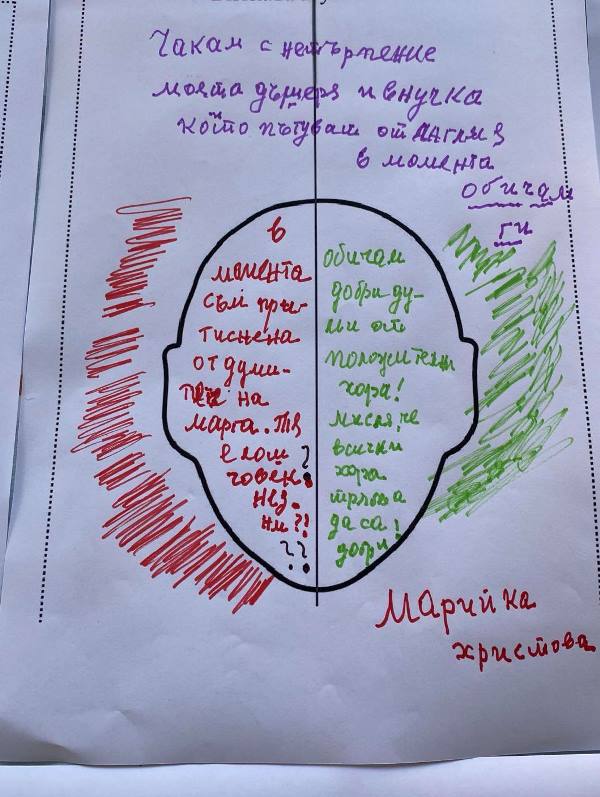 Чакам с нетърпение
моята дъщеря и внучка
които пътуват от Англия
в момента
обичам
ги
в
момента
съм при-
тиснена
от думи-
те на
Марга. Тя
е лош
човек?
нез.
ни?!
??
обичам
добри ду-
ми от
положителни
хора!
мисля, че
всички
хора
трябва
да са!
добри!
Марийка
Христова